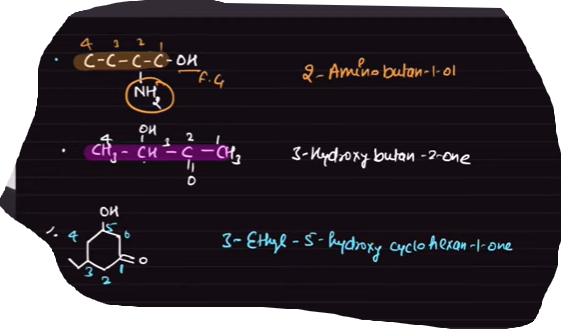 4 3 2 1
C-C-C-C-OH
F.G
NH2
2-Aminobutan-1-ol
OH
4 3 2 1
CH3 - CH - C - CH3
O
3-Hydroxy butan-2-one
OH
4 5 6
3 2 1 O
3-Ethyl-5-hydroxy cyclohexan-1-one